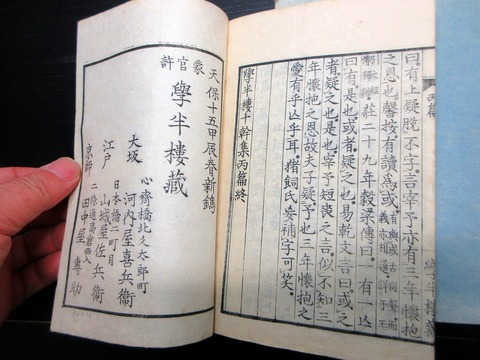 曰有上疑脫不字言宰予亦有三年懷抱
之恩也馨按有讀爲或
莊二十九年穀梁傳曰一有一亾
曰有是或也或者疑之也易乾文言曰或之
者疑之也是也宰予短喪之言似不知三
年懷抱之恩故夫子疑予也三年懷抱之
愛有乎亾乎耳猪飼氏妄補字可笑
學半樓十幹集丙篇終
天保十五甲辰春新鐫
蒙官許
學半樓藏
大坂
心齋橋北久太郎町
河內屋喜兵衞
江戶
日本橋二町目
山城屋佐兵衞
京師
二條通高倉西入
田中屋專助